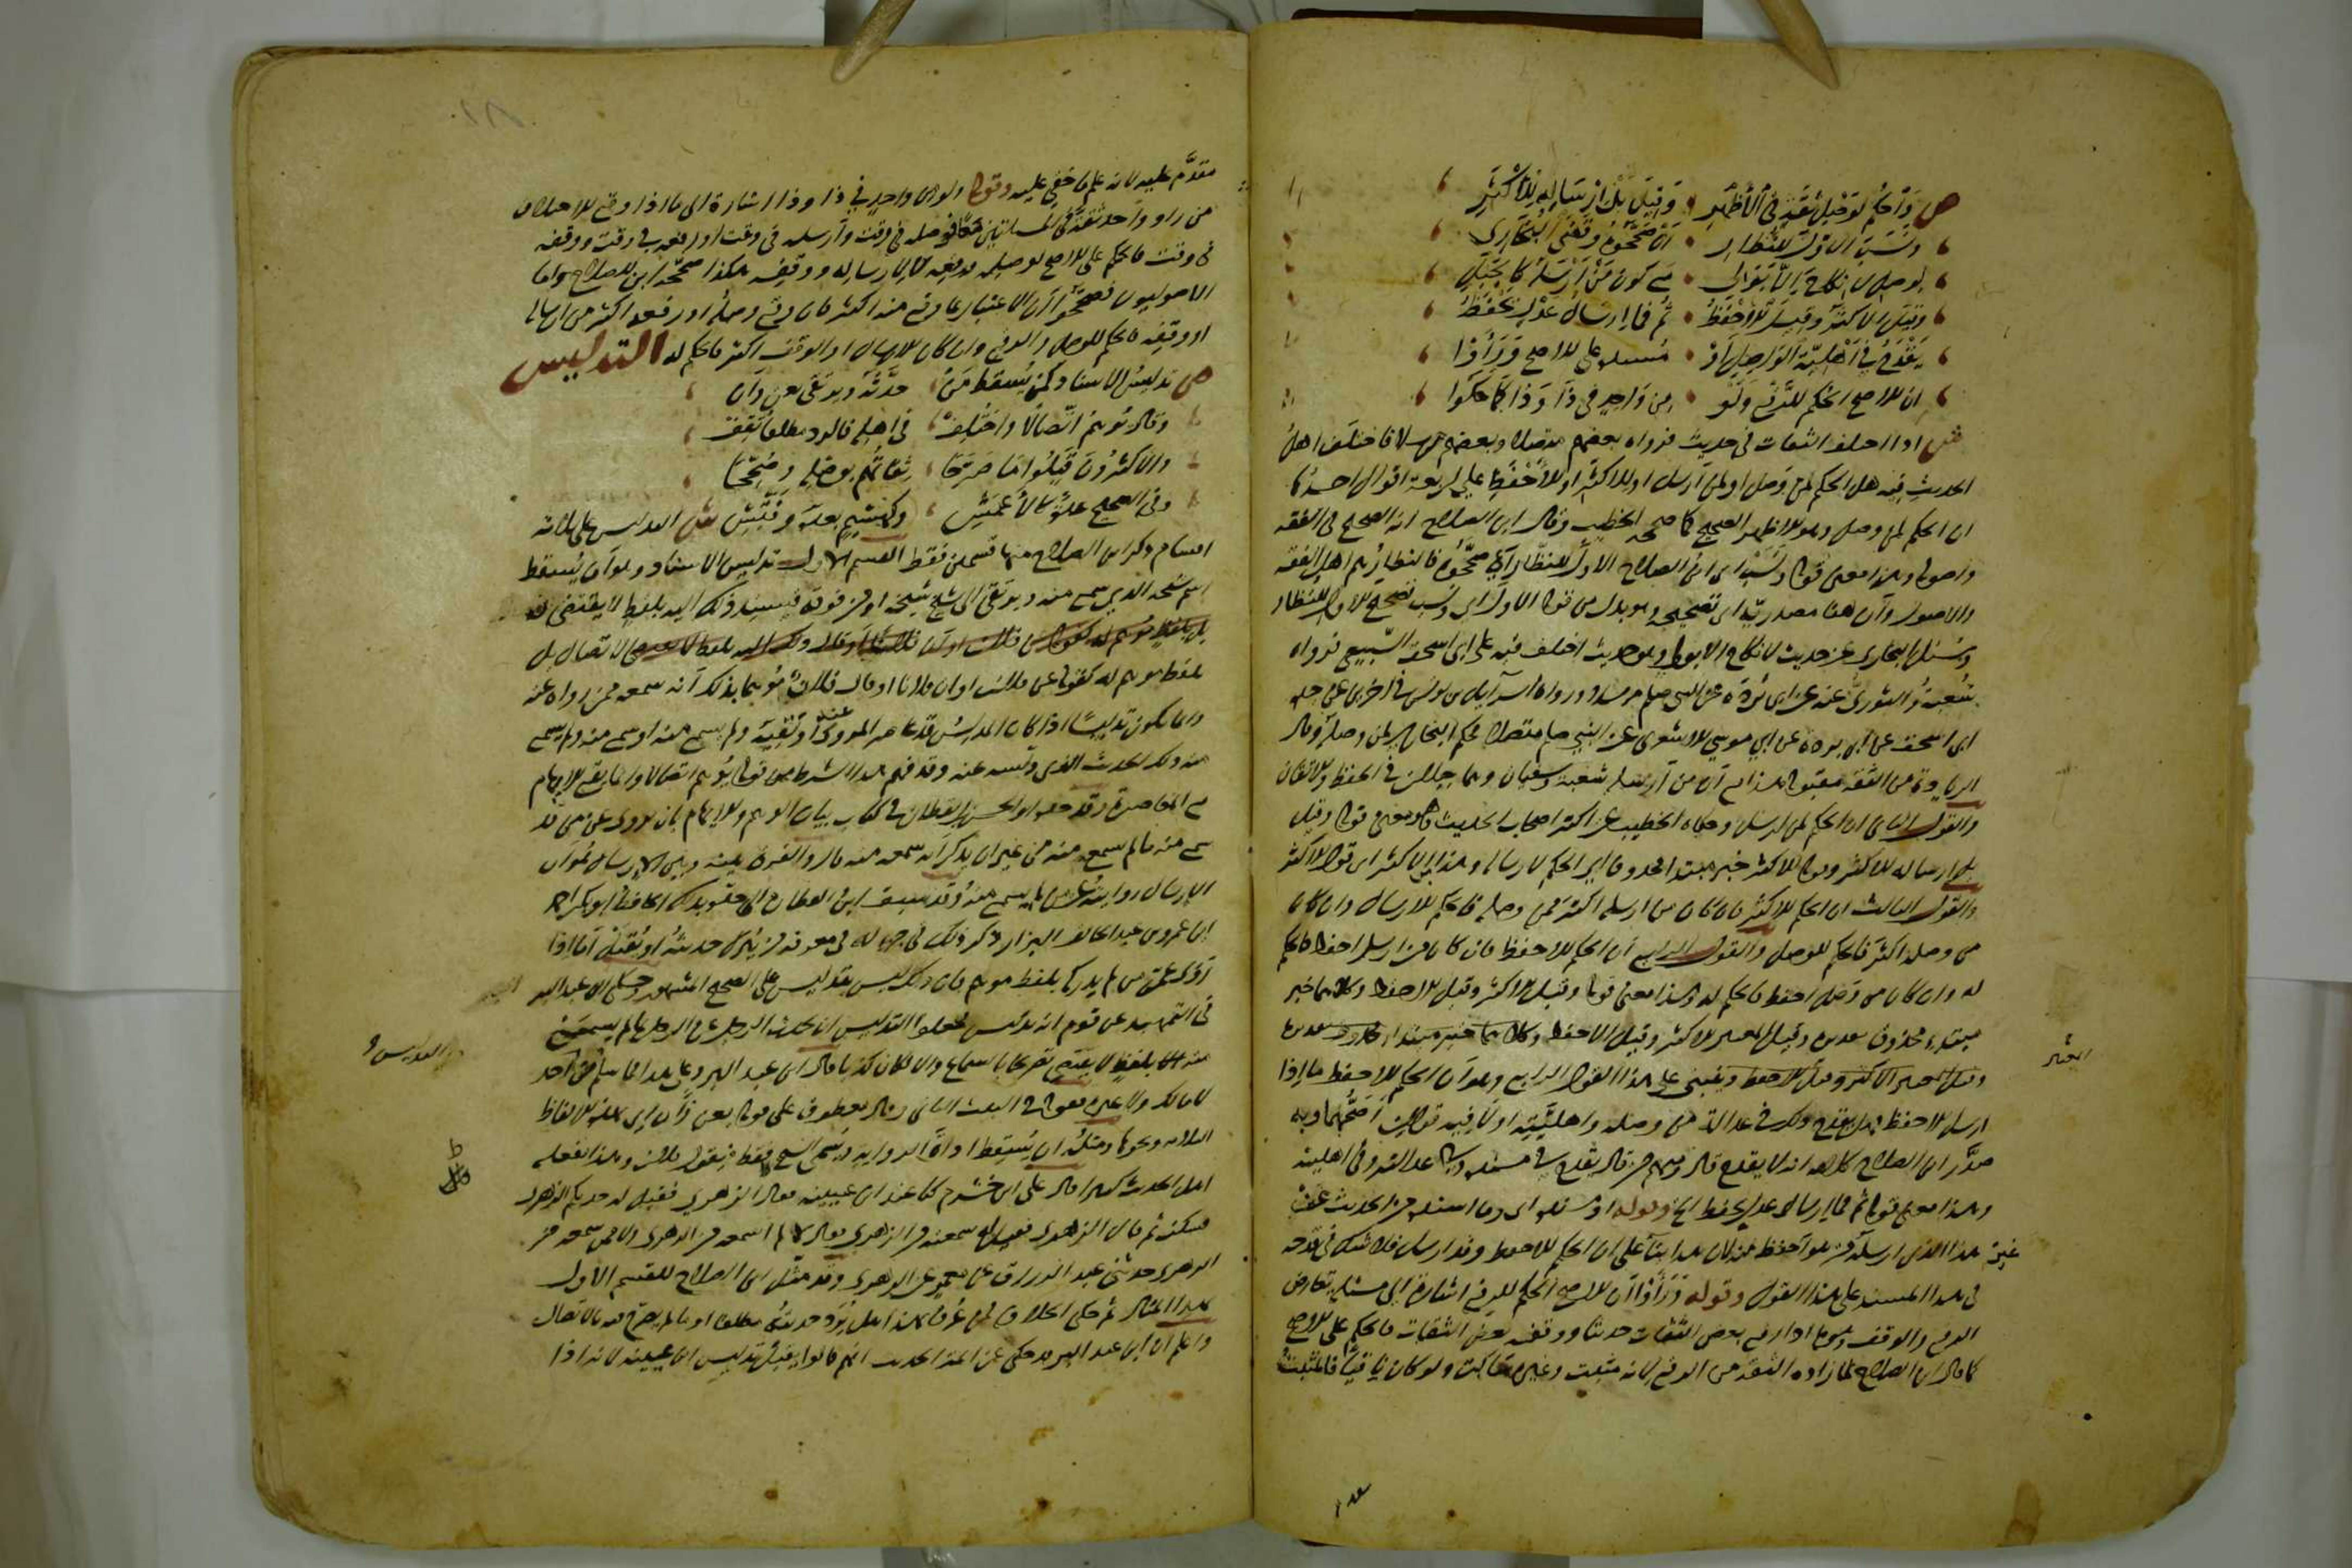 ص وَاحْكُم لوَصْلِ ثِقَةٍ في الأظْهَرِ وَقِيلَ بَلْ إرْسَالِهِ للأكْثَرِ
ونَسَبَ الأوَّلَ للنُّظَّارِ أنْ صَحَّحُوهُ وَقَضَى البُخَارِي
بوصل لا نكاح إلا بولي مع كون من أرسله كالجبل
وقيل الأكثر وقيل الأحفظ ثم فما إرسال عدل يحفظ
يقدح في أهلية الواصل أو مسنده على الأصح ورأوا
أن الأصح الحكم للرفع ولو من واحد في ذا وذا كما حكوا
ش إذا اختلف الثقات في حديث فرواه بعضهم متصلا وبعضهم مرسلا فاختلف أهل
الحديث فيه هل الحكم لمن وصل أو لمن أرسل أو للأكثر أو للأحفظ على أربعة أقوال أحدها
أن الحكم لمن وصل وهو الأظهر الصحيح كما صححه الخطيب وقال ابن الصلاح إنه الصحيح في الفقه
وأصوله وهذا معنى قوله ونسب أي ابن الصلاح الأول للنظار أن صححوه فالنظار هم أهل الفقه
والأصول وأن هنا مصدرية أي تصحيحه وهو بدل من قوله الأول أي ونسب تصحيح الأول للنظار
وسئل البخاري عن حديث لا نكاح إلا بولي وهو حديث اختلف فيه على أبي إسحق السبيعي فرواه
شعبة والثوري عنه عن أبي بردة عن النبي صلعم مرسلا ورواه إسرائيل بن يونس في آخرين عن جده
أبي إسحق عن أبي بردة عن أبي موسى الأشعري عن النبي صلعم متصلا فحكم البخاري لمن وصله وقال
الزيادة من الثقة مقبولة هذا مع أن من أرسله شعبة وسفيان وهما جبلان في الحفظ والإتقان
والقول الثاني أن الحكم لمن أرسل وحكاه الخطيب عن أكثر أصحاب الحديث وهو معنى قوله وقيل
بل إرساله للأكثر وقوله للأكثر خبر مبتدأ محذوف أي الحكم لإرساله وهذا للأكثر أي قول الأكثر
والقول الثالث أن الحكم للأكثر فإن كان من أرسله أكثر ممن وصله فالحكم للإرسال وإن كان
من وصله أكثر فالحكم للوصل والقول الرابع أن الحكم للأحفظ فإن كان من أرسل أحفظ فالحكم
له وإن كان من وصل أحفظ فالحكم له وهذا معنى قوله وقيل الأكثر وقيل الأحفظ وكلاهما خبر
مبتدأ محذوف وقيل الأكثر وقيل الأحفظ وكلاهما خبر مبتدأ محذوف
المعتبر
وقيل المعتبر الأكثر وقيل الأحفظ وينبني على هذا القول الرابع وهو أن الحكم للأحفظ ما إذا
أرسل الأحفظ فهل يقدح ذلك في عدالة من وصله وأهليته أو لا فيه قولان أصحهما وبه
صدر ابن الصلاح كلامه أنه لا يقدح قال ومنهم من قال يقدح في مسنده وفي عدالته وفي أهليته
وهذا معنى قوله ثم فما إرسال عدل يحفظ إلخ وقوله أو مسنده أي وما أسنده من الحديث
غير هذا الذي أرسله من هو أحفظ منه لأن هذا بناء على أن الحكم للأحفظ وقد أرسل فلا شك في قدحه
في هذا المسند على هذا القول وقوله ورأوا أن الأصح الحكم للرفع إشارة إلى مسئلة تعارض
الرفع والوقف وهو ما إذا رفع بعض الثقات حديثا ووقفه بعض الثقات فالحكم على الأصح
كما قال ابن الصلاح لما زاده الثقة من الرفع لأنه مثبت وغيره ساكت ولو كان نافيا فالمثبت
مقدم عليه لأنه علم ما خفي عليه وقوله ولو من واحد في ذا وذا إشارة إلى ما إذا وقع الاختلاف
من راو واحد ثقة في المسئلتين معا فوصله في وقت وأرسله في وقت أو رفعه في وقت ووقفه
في وقت فالحكم على الأصح لوصله ورفعه لا لإرساله ووقفه هكذا صححه ابن الصلاح وأما
الأصوليون فصححوا أن الاعتبار بما وقع منه أكثر فإن وقع وصله أو رفعه أكثر من إرساله
أو وقفه فالحكم للوصل والرفع وإن كان الإرسال أو الوقف أكثر فالحكم له التدليس
ص تدليس الإسناد كمن يسقط من حدثه ويرتقي بعن وأن
وقال يوهم اتصالا واختلف في أهله فالرد مطلقا ثقف
والأكثرون قبلوا ما صرحا ثقاتهم بوصله وصححا
وفي الصحيح عدة كالأعمش وكهشيم بعده وفتش ش التدليس على ثلاثة
أقسام ذكر ابن الصلاح منها قسمين فقط القسم الأول تدليس الإسناد وهو أن يسقط
اسم شيخه الذي سمع منه ويرتقي إلى شيخ شيخه أو من فوقه فيسند ذلك إليه بلفظ لا يقتضي
الاتصال بل
بلفظ موهم له كقوله عن فلان أو أن فلانا أو قال فلان موهما بذلك أنه سمعه ممن رواه عنه
وإنما يكون تدليسا إذا كان المدلس قد عاصر المروي عنه أو لقيه ولم يسمع منه أو سمع منه ولم يسمع
منه ذلك الحديث الذي دلسه عنه وقد فهم هذا الشرط من قوله يوهم اتصالا وإنما يقع الإيهام
مع المعاصرة وقد حده أبو الحسن بن القطان في كتاب بيان الوهم والإيهام بأن يروي عمن قد
سمع منه ما لم يسمع منه من غير أن يذكر أنه سمعه منه قال والفرق بينه وبين الإرسال هو أن
الإرسال روايته عمن لم يسمع منه وقد سبق ابن القطان إلى حده بذلك الحافظ أبو بكر أحمد
بن عمرو بن عبد الخالق البزار ذكر ذلك في جزء له في معرفة من يترك حديثه أو يقبل أما إذا
روى عمن لم يدركه بلفظ موهم فإن ذلك ليس بتدليس على الصحيح المشهور وحكى ابن عبد البر
في التمهيد عن قوم أنه تدليس فجعلوا التدليس أن يحدث الرجل عن الرجل بما لم يسمعه
منه بلفظ لا يقتضي تصريحا بالسماع وإلا لكان كذبا قال ابن عبد البر وعلى هذا فما سلم من أحد
لا مالك ولا غيره فقوله في البيت الثاني وقال معطوف على قوله بعن وأن أي بهذه الألفاظ
الثلاثة ونحوها ومثله أن يسقط أداة الرواية ويسمي الشيخ فقط فيقول فلان وهذا يفعله
أهل الحديث كثيرا قال علي بن خشرم كنا عند ابن عيينة فقال الزهري فقيل له حدثكم الزهري
فسكت ثم قال الزهري فقيل له سمعته من الزهري فقال لا لم أسمعه من الزهري ولا ممن سمعه من
الزهري حدثني عبد الرزاق عن معمر عن الزهري وقد مثل ابن الصلاح للقسم الأول
بهذا المثال ثم حكى الخلاف فيمن عرف بهذا هل يرد حديثه مطلقا أو ما لم يصرح فيه بالاتصال
واعلم أن ابن عبد البر قد حكى عن أئمة الحديث أنهم قالوا يقبل تدليس ابن عيينة لأنه إذا